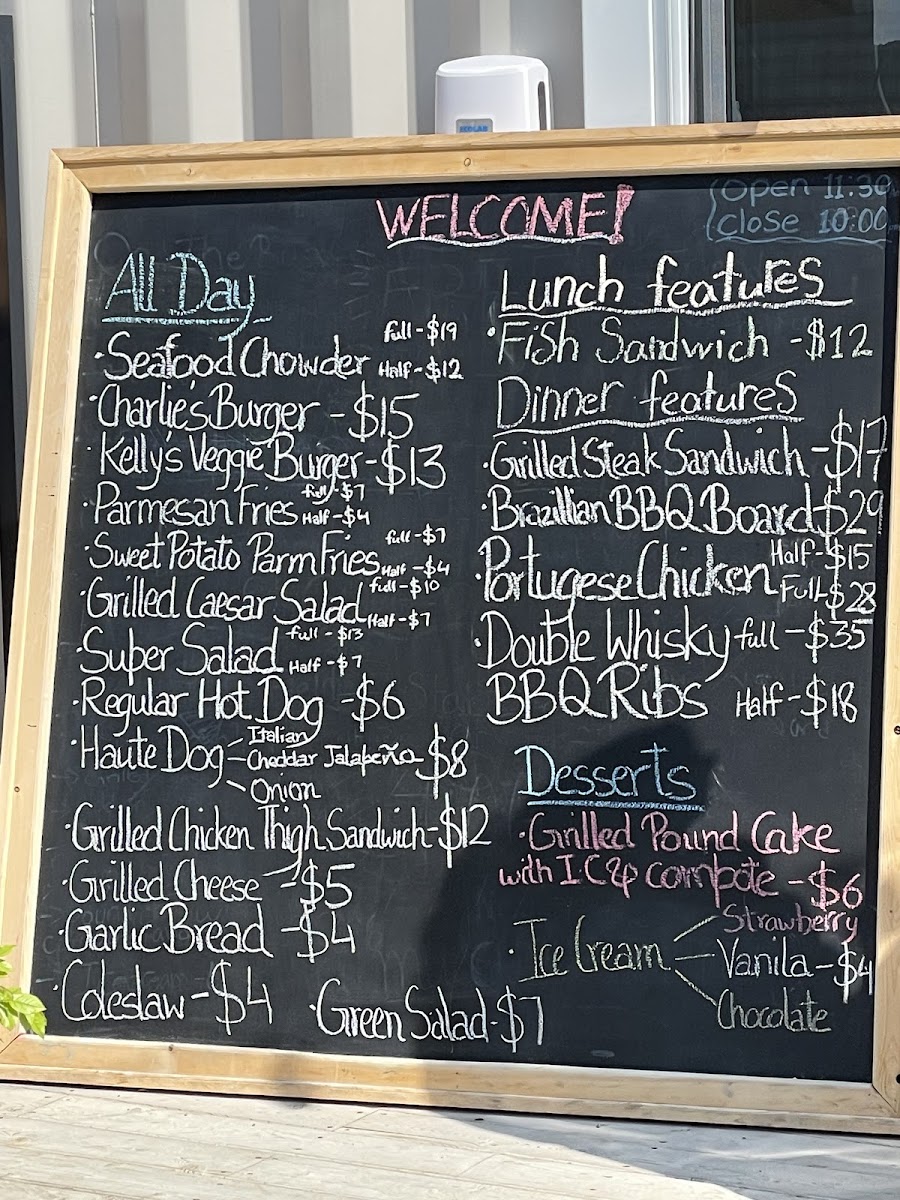 ECOLAB
WELCOME!
Open 11:30
Close 10:00
All Day
• Seafood Chowder full - $19
Half - $12
• Charlie's Burger - $15
• Kelly's Veggie Burger - $13
• Parmesan Fries full - $7
Half - $4
• Sweet Potato Parm Fries full - $7
Half - $4
• Grilled Caesar Salad full - $10
Half - $7
• Super Salad full - $13
Half - $7
• Regular Hot Dog - $6
• Haute Dog Italian
Cheddar Jalapeño $8
Onion
• Grilled Chicken Thigh Sandwich - $12
• Grilled Cheese - $5
• Garlic Bread - $4
• Coleslaw - $4
• Green Salad - $7
Lunch features
• Fish Sandwich - $12
Dinner features
• Grilled Steak Sandwich - $17
• Brazillian BBQ Board $29
• Portugese Chicken Half - $15
Full - $28
• Double Whisky full - $35
BBQ Ribs Half - $18
Desserts
• Grilled Pound Cake
with I.C & compote - $6
• Ice Cream Strawberry
Vanila - $4
Chocolate